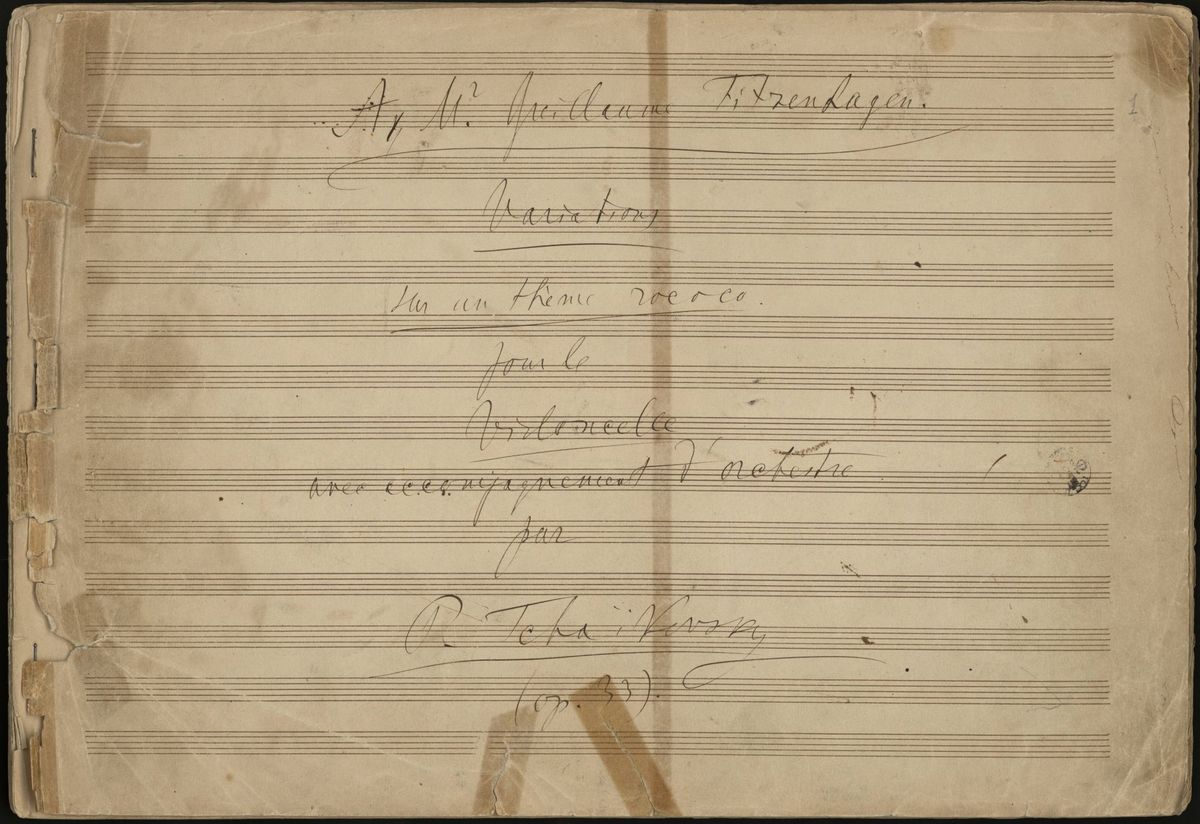 A Mr. Guillaume Fitzenhagen.
1
Variations
sur un thème rococo.
pour le
Violoncelle
avec accompagnement d'orchestre
par
P. Tchaïkovsky
(op. 33).